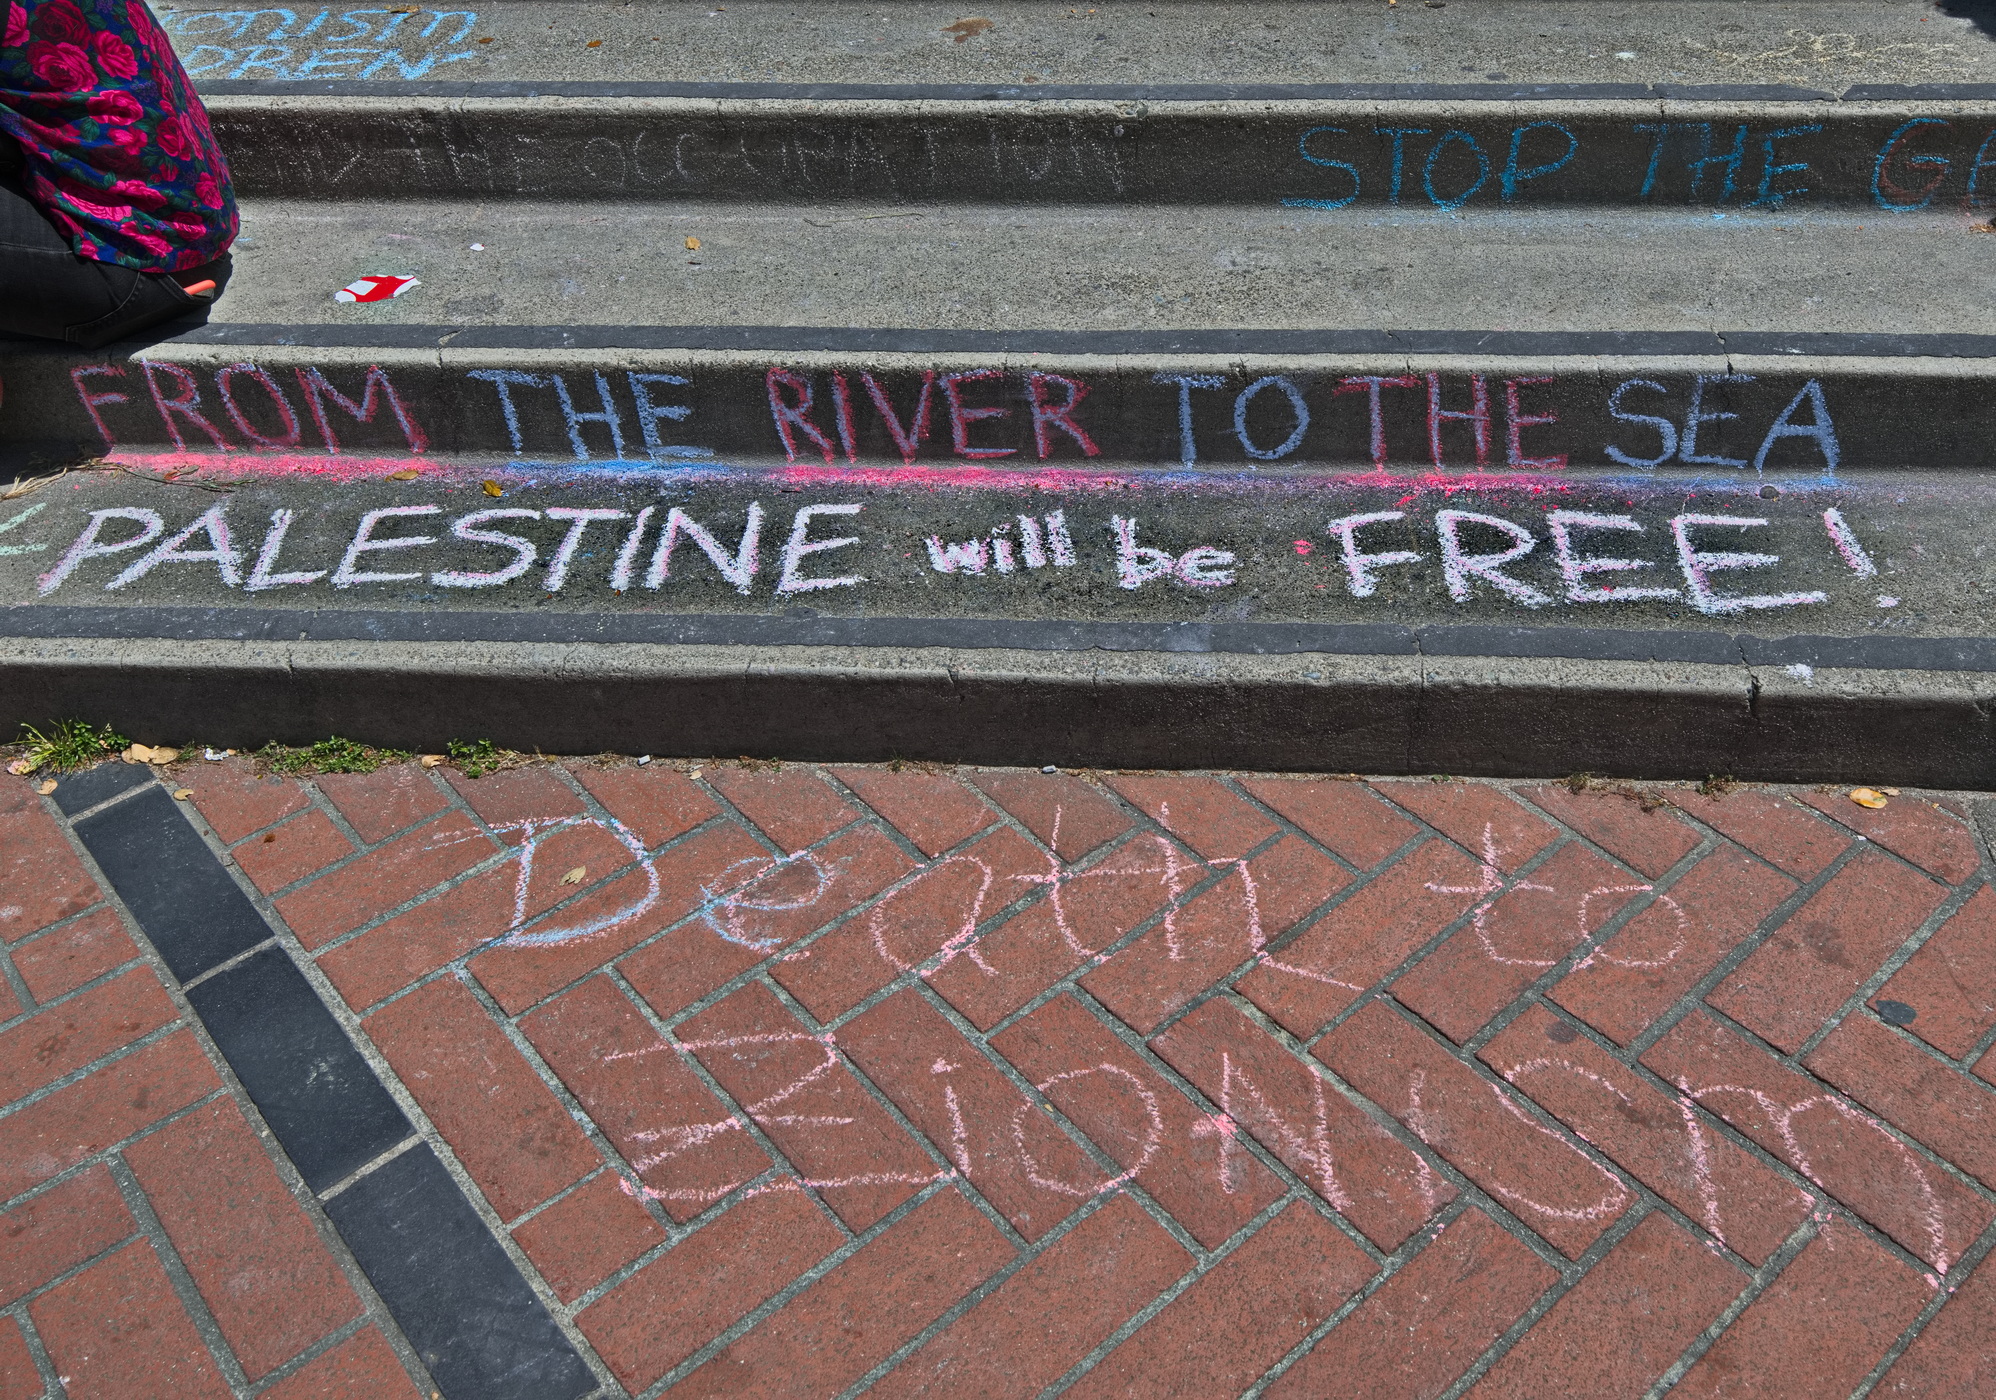 STOP THE
THE OCCUPATION
FROM THE RIVER TO THE SEA
PALESTINE will be FREE!
Death to
ZIONISM